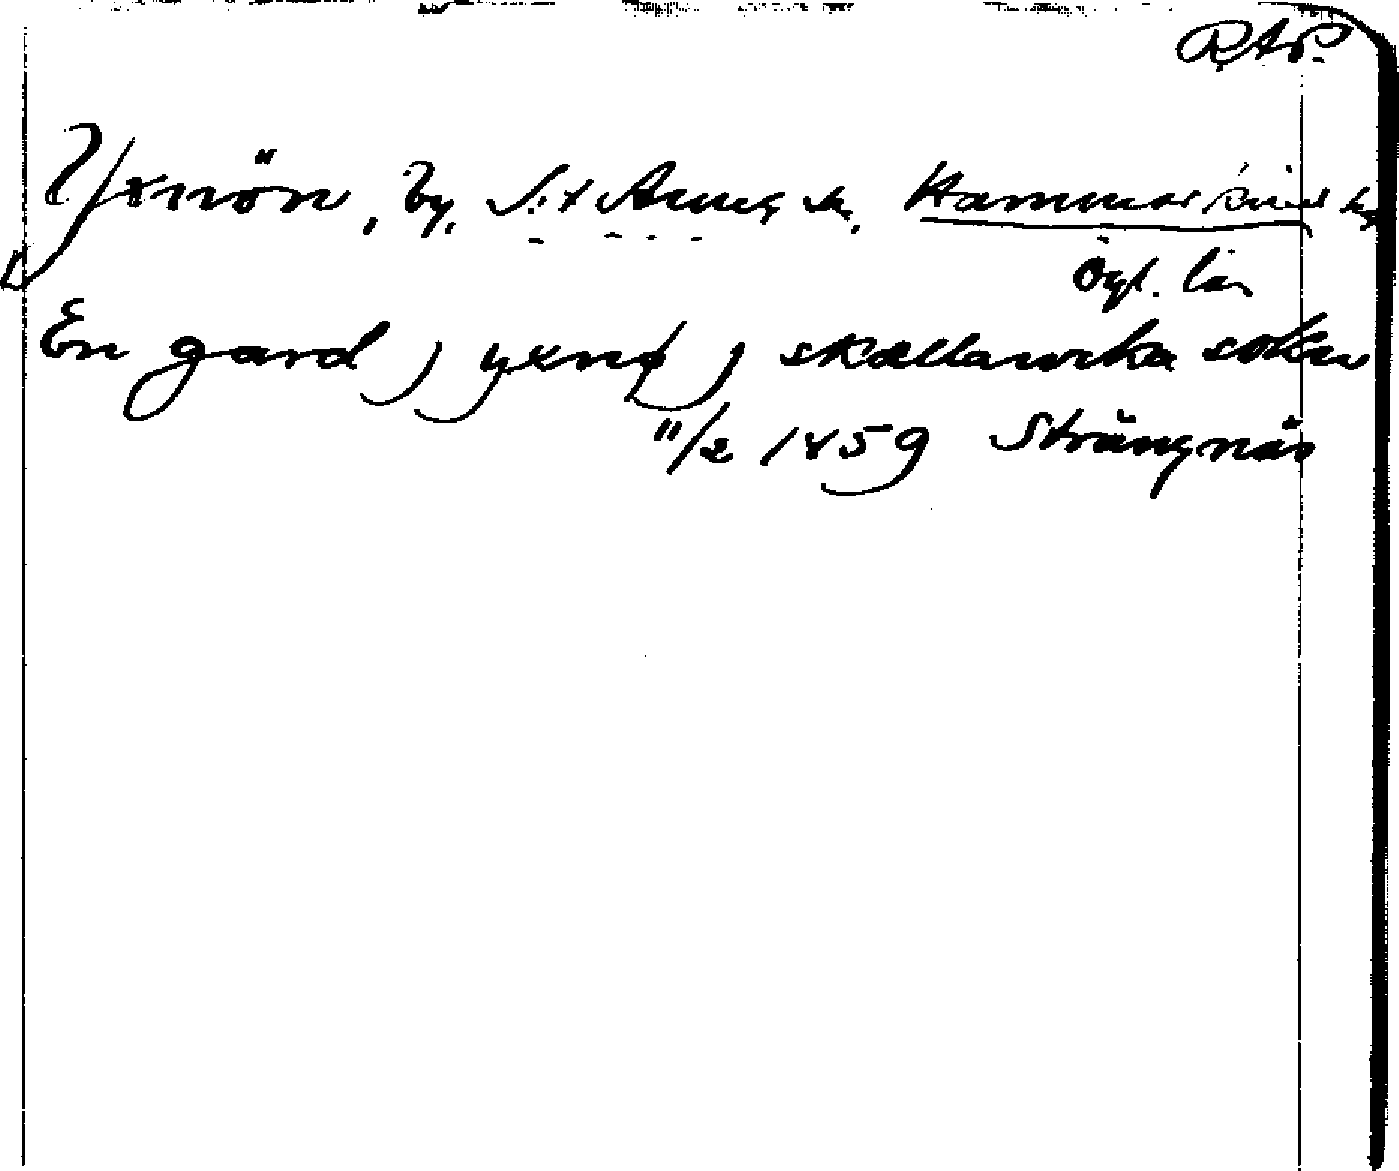 RAP.
Yxnön, by, S:t Anna sn, Hammarkinds hd
Ögl. län
En gard j yxnø j skællawika sokn
11/2 1459 Strängnäs